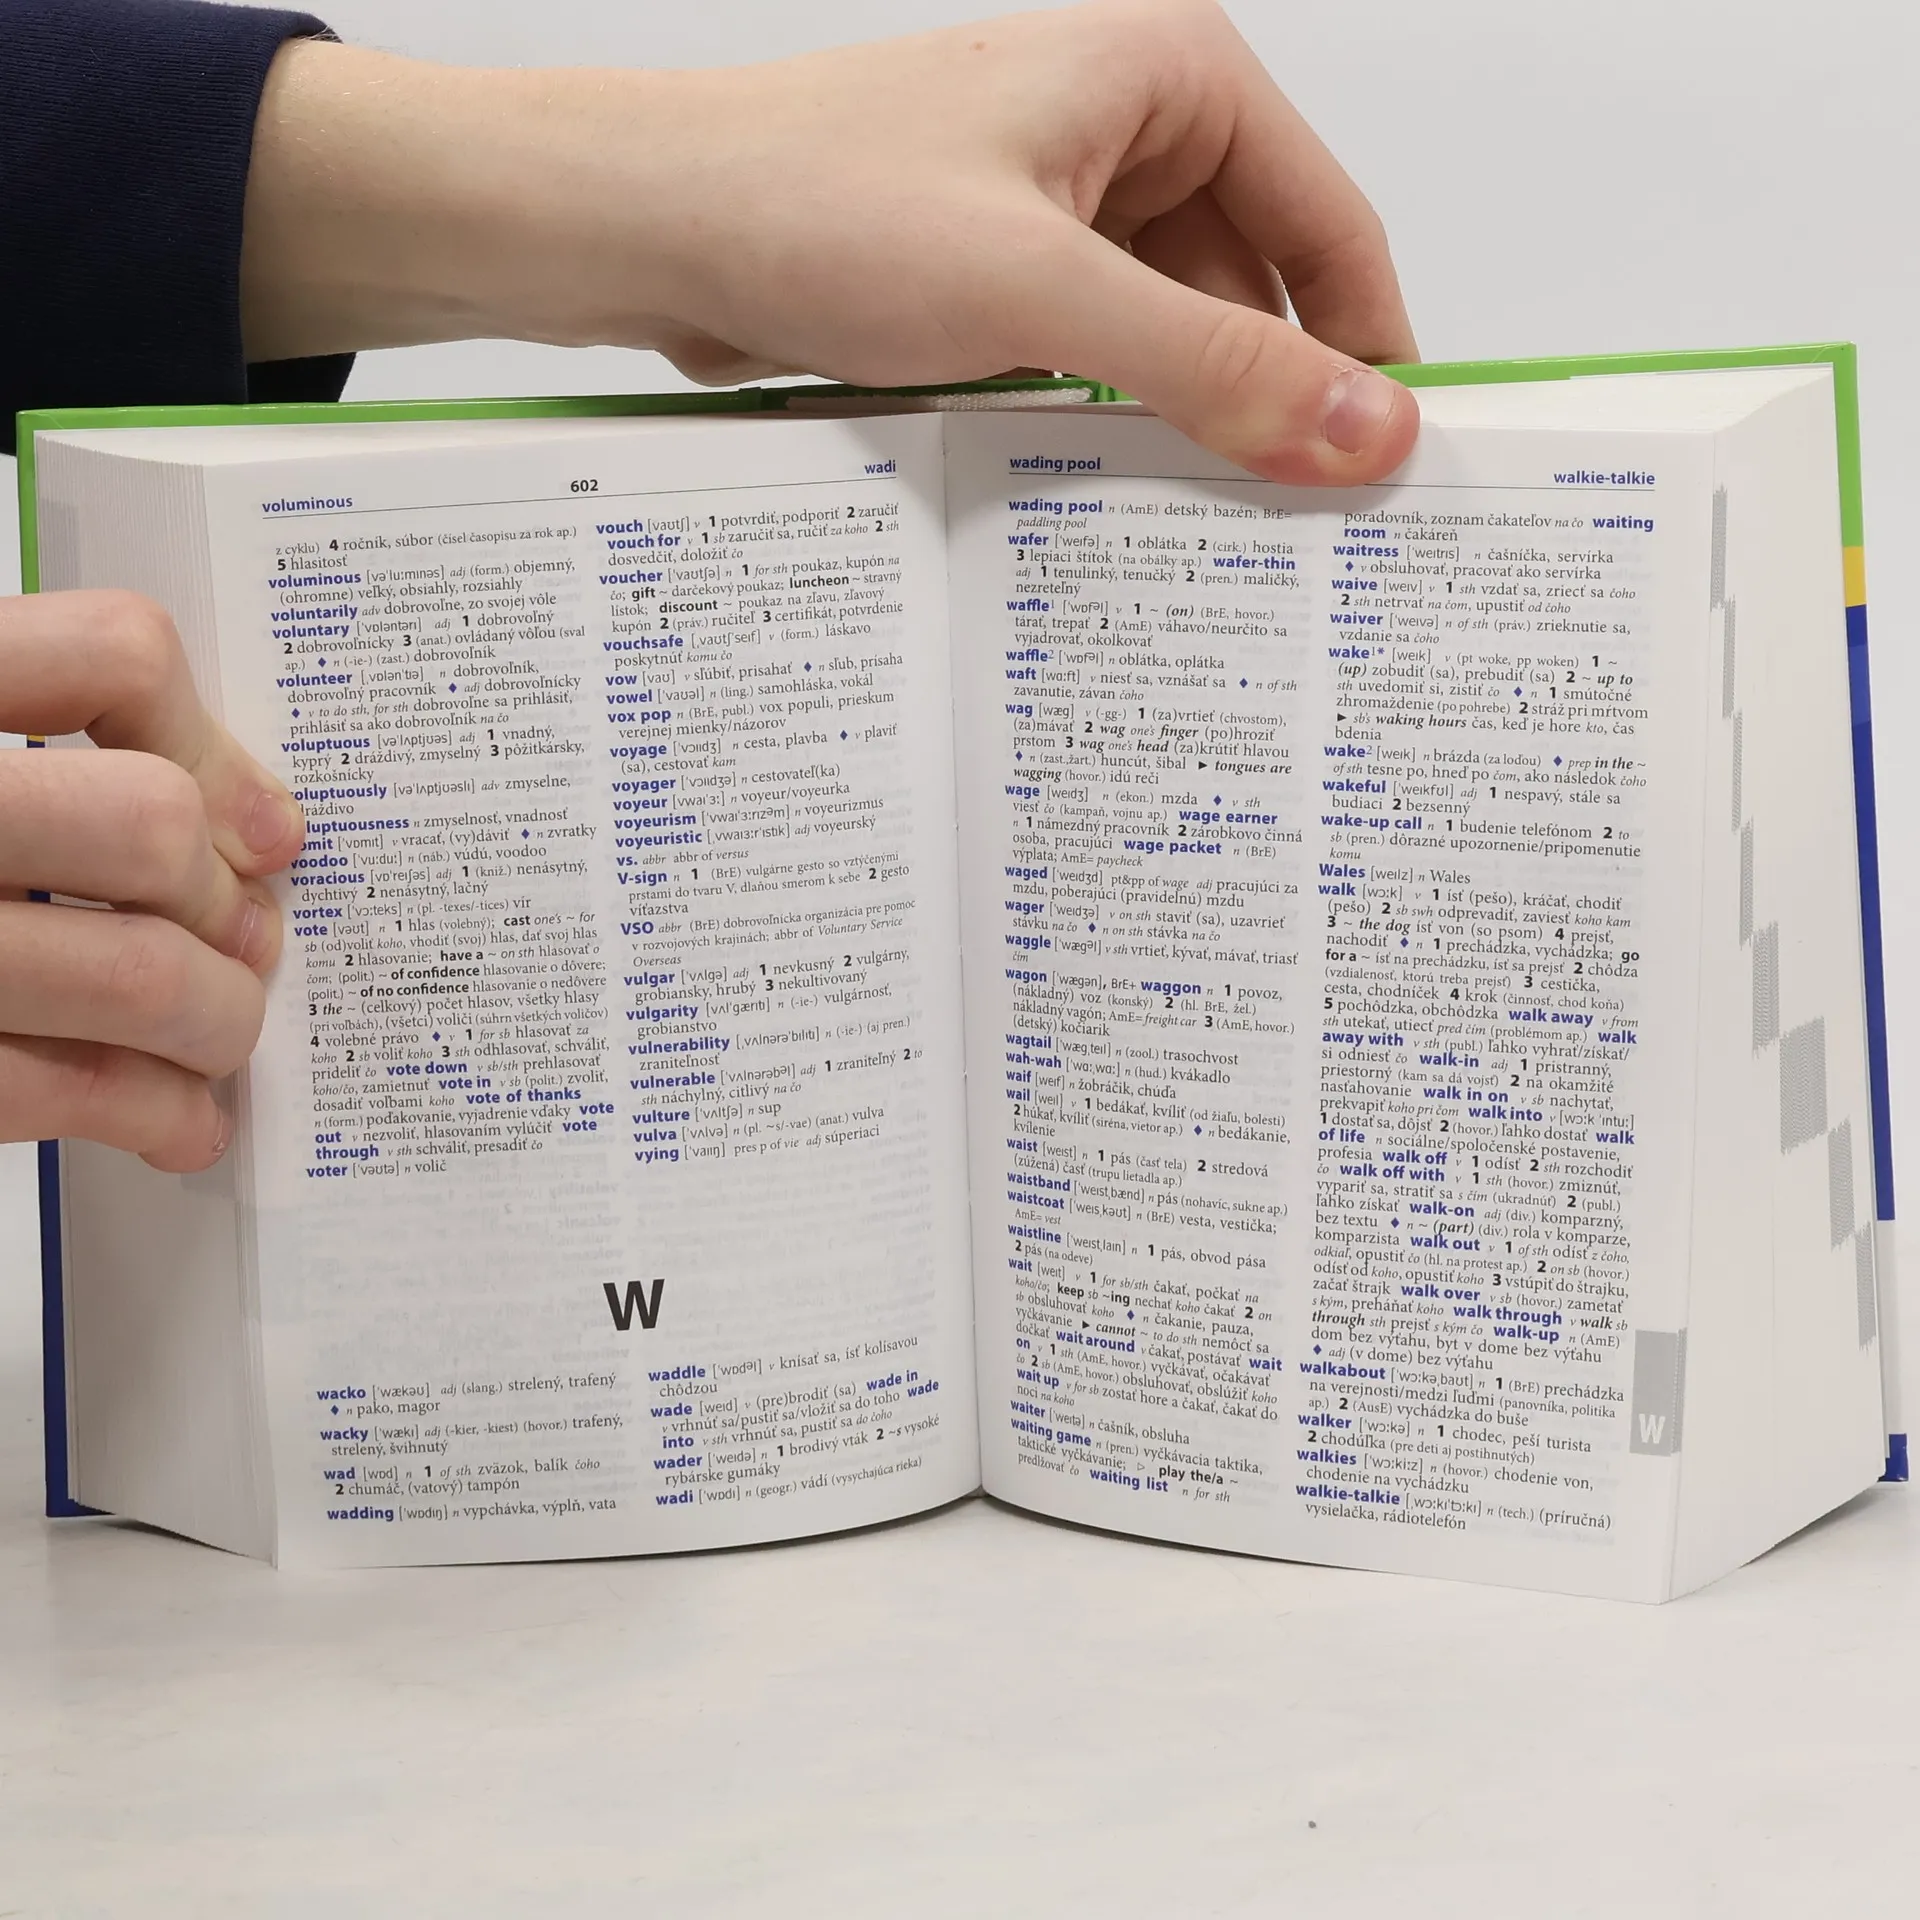 voluminous
602
wadi
z cyklu) 4 ročník, súbor (čísel časopisu za rok ap.)
5 hlasitosť
voluminous [vəˈluːmɪnəs] adj (form.) objemný,
(ohromne) veľký, obsiahly, rozsiahly
voluntarily adv dobrovoľne, zo svojej vôle
voluntary [ˈvɒləntərɪ] adj 1 dobrovoľný
2 dobrovoľnícky 3 (anat.) ovládaný vôľou (sval
ap.) ♦ n (-ie-) (zast.) dobrovoľník
volunteer [ˌvɒlənˈtɪə] n dobrovoľník,
dobrovoľný pracovník ♦ adj dobrovoľnícky
♦ v to do sth, for sth dobrovoľne sa prihlásiť,
prihlásiť sa ako dobrovoľník na čo
voluptuous [vəˈlʌptjʊəs] adj 1 vnadný,
kyprý 2 dráždivý, zmyselný 3 pôžitkársky,
rozkošnícky
oluptuously [vəˈlʌptjʊəslɪ] adv zmyselne,
ráždivo
luptuousness n zmyselnosť, vnadnosť
omit [ˈvɒmɪt] v vracať, (vy)dáviť ♦ n zvratky
voodoo [ˈvuːduː] n (náb.) vúdú, voodoo
voracious [vɒˈreɪʃəs] adj 1 (kniž.) nenásytný,
dychtivý 2 nenásytný, lačný
vortex [ˈvɔːteks] n (pl. -texes/-tices) vír
vote [vəʊt] n 1 hlas (volebný); cast one's ~ for
sb (od)voliť koho, vhodiť (svoj) hlas, dať svoj hlas
komu 2 hlasovanie; have a ~ on sth hlasovať o
čom; (polit.) ~ of confidence hlasovanie o dôvere;
(polit.) ~ of no confidence hlasovanie o nedôvere
3 the ~ (celkový) počet hlasov, všetky hlasy
(pri voľbách), (všetci) voliči (súhrn všetkých voličov)
4 volebné právo ♦ v 1 for sb hlasovať za
koho 2 sb voliť koho 3 sth odhlasovať, schváliť,
prideliť čo vote down v sb/sth prehlasovať
koho/čo, zamietnuť vote in v sb (polit.) zvoliť,
dosadiť voľbami koho vote of thanks
n (form.) poďakovanie, vyjadrenie vďaky vote
out v nezvoliť, hlasovaním vylúčiť vote
through v sth schváliť, presadiť čo
voter [ˈvəʊtə] n volič
vouch [vaʊtʃ] v 1 potvrdiť, podporiť 2 zaručiť
vouch for v 1 sb zaručiť sa, ručiť za koho 2 sth
dosvedčiť, doložiť čo
voucher [ˈvaʊtʃə] n 1 for sth poukaz, kupón na
čo; gift ~ darčekový poukaz; luncheon ~ stravný
lístok; discount ~ poukaz na zľavu, zľavový
kupón 2 (práv.) ručiteľ 3 certifikát, potvrdenie
vouchsafe [ˌvaʊtʃˈseɪf] v (form.) láskavo
poskytnúť komu čo
vow [vaʊ] v sľúbiť, prisahať ♦ n sľub, prísaha
vowel [ˈvaʊəl] n (ling.) samohláska, vokál
vox pop n (BrE, publ.) vox populi, prieskum
verejnej mienky/názorov
voyage [ˈvɔɪɪdʒ] n cesta, plavba ♦ v plaviť
(sa), cestovať kam
voyager [ˈvɔɪɪdʒə] n cestovateľ(ka)
voyeur [vwaɪˈɜː] n voyeur/voyeurka
voyeurism [ˈvwaɪˈɜːrɪzəm] n voyeurizmus
voyeuristic [ˌvwaɪɜːrˈɪstɪk] adj voyeurský
vs. abbr abbr of versus
V-sign n 1 (BrE) vulgárne gesto so vztýčenými
prstami do tvaru V, dlaňou smerom k sebe 2 gesto
víťazstva
VSO abbr (BrE) dobrovoľnícka organizácia pre pomoc
v rozvojových krajinách; abbr of Voluntary Service
Overseas
vulgar [ˈvʌlgə] adj 1 nevkusný 2 vulgárny,
grobiansky, hrubý 3 nekultivovaný
vulgarity [vʌlˈgærɪtɪ] n (-ie-) vulgárnosť,
grobianstvo
vulnerability [ˌvʌlnərəˈbɪlɪtɪ] n (-ie-) (aj pren.)
zraniteľnosť
vulnerable [ˈvʌlnərəbəl] adj 1 zraniteľný 2 to
sth náchylný, citlivý na čo
vulture [ˈvʌltʃə] n sup
vulva [ˈvʌlvə] n (pl. ~s/-vae) (anat.) vulva
vying [ˈvaɪɪŋ] pres p of vie adj súperiaci
W
wacko [ˈwækəʊ] adj (slang.) strelený, trafený
♦ n pako, magor
wacky [ˈwækɪ] adj (-kier, -kiest) (hovor.) trafený,
strelený, švihnutý
wad [wɒd] n 1 of sth zväzok, balík čoho
2 chumáč, (vatový) tampón
wadding [ˈwɒdɪŋ] n vypchávka, výplň, vata
waddle [ˈwɒdəl] v knísať sa, ísť kolísavou
chôdzou
wade [weɪd] v (pre)brodiť (sa) wade in
v vrhnúť sa/pustiť sa/vložiť sa do toho wade
into v sth vrhnúť sa, pustiť sa do čoho
wader [ˈweɪdə] n 1 brodivý vták 2 ~s vysoké
rybárske gumáky
wadi [ˈwɒdɪ] n (geogr.) vádí (vysychajúca rieka)
wading pool
walkie-talkie
wading pool n (AmE) detský bazén; BrE=
paddling pool
wafer [ˈweɪfə] n 1 oblátka 2 (cirk.) hostia
3 lepiaci štítok (na obálky ap.) wafer-thin
adj 1 tenulinký, tenučký 2 (pren.) maličký,
nezreteľný
waffle1 [ˈwɒfəl] v 1 ~ (on) (BrE, hovor.)
tárať, trepať 2 (AmE) váhavo/neurčito sa
vyjadrovať, okolkovať
waffle2 [ˈwɒfəl] n oblátka, oplátka
waft [wɑːft] v niesť sa, vznášať sa ♦ n of sth
zavanutie, závan čoho
wag [wæg] v (-gg-) 1 (za)vrtieť (chvostom),
(za)mávať 2 wag one's finger (po)hroziť
prstom 3 wag one's head (za)krútiť hlavou
♦ n (zast.,žart.) huncút, šibal ► tongues are
wagging (hovor.) idú reči
wage [weɪdʒ] n (ekon.) mzda ♦ v sth
viesť čo (kampaň, vojnu ap.) wage earner
n 1 námezdný pracovník 2 zárobkovo činná
osoba, pracujúci wage packet n (BrE)
výplata; AmE= paycheck
waged [ˈweɪdʒd] pt&pp of wage adj pracujúci za
mzdu, poberajúci (pravidelnú) mzdu
wager [ˈweɪdʒə] v on sth staviť (sa), uzavrieť
stávku na čo ♦ n on sth stávka na čo
waggle [ˈwægəl] v sth vrtieť, kývať, mávať, triasť
čím
wagon [ˈwægən], BrE+ waggon n 1 povoz,
(nákladný) voz (konský) 2 (hl. BrE, žel.)
nákladný vagón; AmE= freight car 3 (AmE, hovor.)
(detský) kočiarik
wagtail [ˈwægˌteɪl] n (zool.) trasochvost
wah-wah [ˈwɑːˌwɑː] n (hud.) kvákadlo
waif [weɪf] n žobráčik, chúďa
wail [weɪl] v 1 bedákať, kvíliť (od žiaľu, bolesti)
2 húkať, kvíliť (siréna, vietor ap.) ♦ n bedákanie,
kvílenie
waist [weɪst] n 1 pás (časť tela) 2 stredová
(zúžená) časť (trupu lietadla ap.)
waistband [ˈweɪstˌbænd] n pás (nohavíc, sukne ap.)
waistcoat [ˈweɪsˌkəʊt] n (BrE) vesta, vestička;
AmE= vest
waistline [ˈweɪstˌlaɪn] n 1 pás, obvod pása
2 pás (na odeve)
wait [weɪt] v 1 for sb/sth čakať, počkať na
koho/čo; keep sb ~ing nechať koho čakať 2 on
sb obsluhovať koho ♦ n čakanie, pauza,
vyčkávanie ► cannot ~ to do sth nemôcť sa
dočkať wait around v čakať, postávať wait
on v 1 sth (AmE, hovor.) vyčkávať, očakávať
čo 2 sb (AmE, hovor.) obsluhovať, obslúžiť koho
wait up v for sb zostať hore a čakať, čakať do
noci na koho
waiter [ˈweɪtə] n čašník, obsluha
waiting game n (pren.) vyčkávacia taktika,
taktické vyčkávanie; ▷ play the/a ~
predlžovať čo waiting list n for sth
poradovník, zoznam čakateľov na čo waiting
room n čakáreň
waitress [ˈweɪtrɪs] n čašníčka, servírka
♦ v obsluhovať, pracovať ako servírka
waive [weɪv] v 1 sth vzdať sa, zriecť sa čoho
2 sth netrvať na čom, upustiť od čoho
waiver [ˈweɪvə] n of sth (práv.) zrieknutie sa,
vzdanie sa čoho
wake1* [weɪk] v (pt woke, pp woken) 1 ~
(up) zobudiť (sa), prebudiť (sa) 2 ~ up to
sth uvedomiť si, zistiť čo ♦ n 1 smútočné
zhromaždenie (po pohrebe) 2 stráž pri mŕtvom
► sb's waking hours čas, keď je hore kto, čas
bdenia
wake2 [weɪk] n brázda (za loďou) ♦ prep in the ~
of sth tesne po, hneď po čom, ako následok čoho
wakeful [ˈweɪkfʊl] adj 1 nespavý, stále sa
budiaci 2 bezsenný
wake-up call n 1 budenie telefónom 2 to
sb (pren.) dôrazné upozornenie/pripomenutie
komu
Wales [weɪlz] n Wales
walk [wɔːk] v 1 ísť (pešo), kráčať, chodiť
(pešo) 2 sb swh odprevadiť, zaviesť koho kam
3 ~ the dog ísť von (so psom) 4 prejsť,
nachodiť ♦ n 1 prechádzka, vychádzka; go
for a ~ ísť na prechádzku, ísť sa prejsť 2 chôdza
(vzdialenosť, ktorú treba prejsť) 3 cestička,
cesta, chodníček 4 krok (činnosť, chod koňa)
5 pochôdzka, obchôdzka walk away v from
sth utekať, utiecť pred čím (problémom ap.) walk
away with v sth (publ.) ľahko vyhrať/získať/
si odniesť čo walk-in adj 1 prístranný,
priestorný (kam sa dá vojsť) 2 na okamžité
nasťahovanie walk in on v sb nachytať,
prekvapiť koho pri čom walk into v [wɔːk ˈɪntuː]
1 dostať sa, dôjsť 2 (hovor.) ľahko dostať walk
of life n sociálne/spoločenské postavenie,
profesia walk off v 1 odísť 2 sth rozchodiť
čo walk off with v 1 sth (hovor.) zmiznúť,
vypariť sa, stratiť sa s čím (ukradnúť) 2 (publ.)
ľahko získať walk-on adj (div.) komparzný,
bez textu ♦ n ~ (part) (div.) rola v komparze,
komparzista walk out v 1 of sth odísť z čoho,
odkiaľ, opustiť čo (hl. na protest ap.) 2 on sb (hovor.)
odísť od koho, opustiť koho 3 vstúpiť do štrajku,
začať štrajk walk over v sb (hovor.) zametať
s kým, preháňať koho walk through v walk sb
through sth prejsť s kým čo walk-up n (AmE)
dom bez výťahu, byt v dome bez výťahu
♦ adj (v dome) bez výťahu
walkabout [ˈwɔːkəˌbaʊt] n 1 (BrE) prechádzka
na verejnosti/medzi ľuďmi (panovníka, politika
ap.) 2 (AusE) vychádzka do buše
walker [ˈwɔːkə] n 1 chodec, peší turista
2 chodúľka (pre deti aj postihnutých)
walkies [ˈwɔːkiːz] n (hovor.) chodenie von,
chodenie na vychádzku
walkie-talkie [ˌwɔːkɪˈtɔːkɪ] n (tech.) (príručná)
vysielačka, rádiotelefón
W